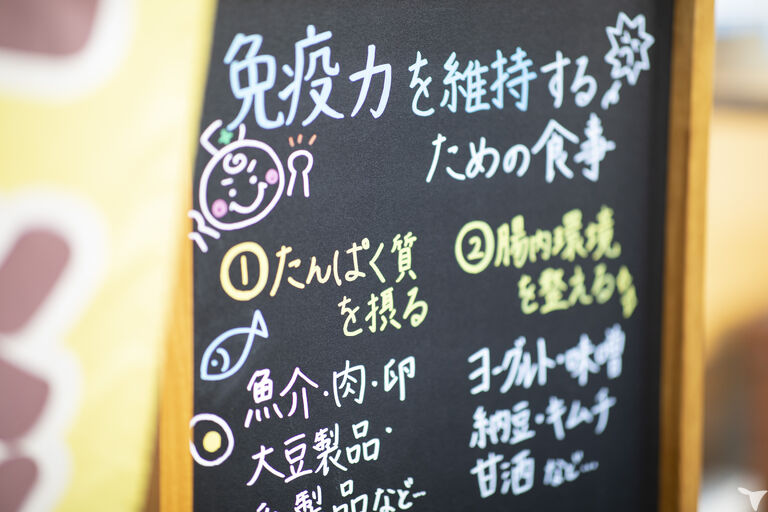 免疫力を維持する
ための食事
①たんぱく質
を摂る
魚介・肉・卵
大豆製品・
製品など…
②腸内環境
を整える
ヨーグルト・味噌
納豆・キムチ
甘酒など…